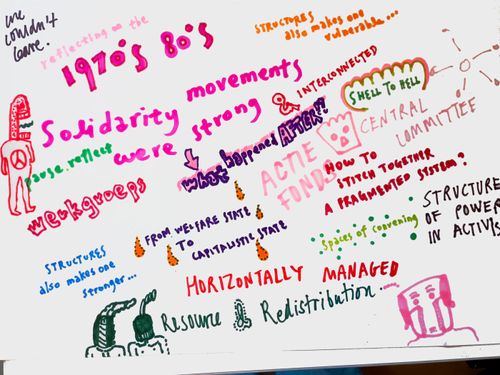 we
couldn't
leave.
reflecting on the
1970's 80's
STRUCTURES
also makes one
vulnerable...
Solidarity movements
were strong
INTERCONNECTED
SHELL TO HELL
CENTRAL
COMMITTEE
pause.reflect
what happened AFTER?!
ACTIE
FONDS
HOW TO
STITCH TOGETHER
A FRAGMENTED SYSTEM?
werkgroeps
FROM WELFARE STATE
TO
CAPITALISTIC STATE
Spaces of convening
STRUCTURE
OF POWER
IN ACTIVIS
STRUCTURES
also makes one
stronger...
HORIZONTALLY MANAGED
Resource & Redistribution...